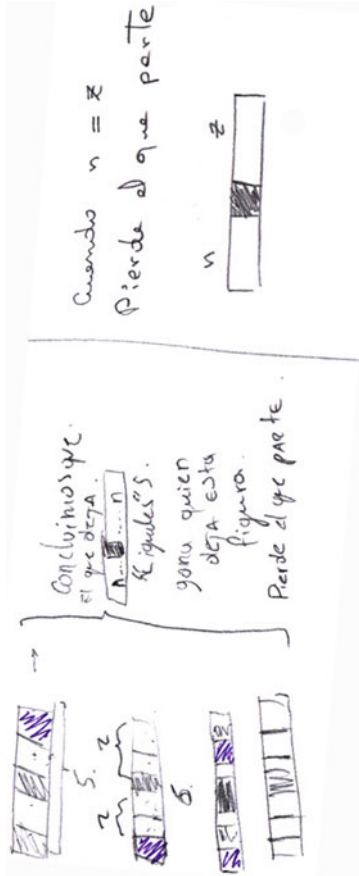 5.
2 2
6.
Concluimos que.
El que deja.
n.... ....n
gana quien
deja esta
figura.
Pierde el que parte.
Cuando n = z
Pierde el que parte
n z